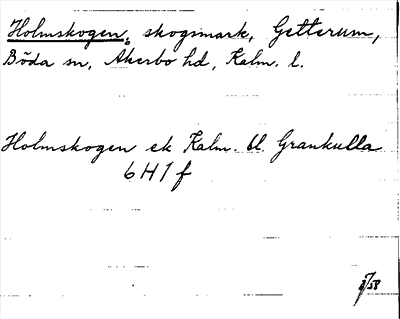 Holmskogen, skogsmark, Getterum,
Böda sn, Åkerbo hd, Kalm. l.
Holmskogen ek Kalm. bl. Grankulla
6 H 1 f